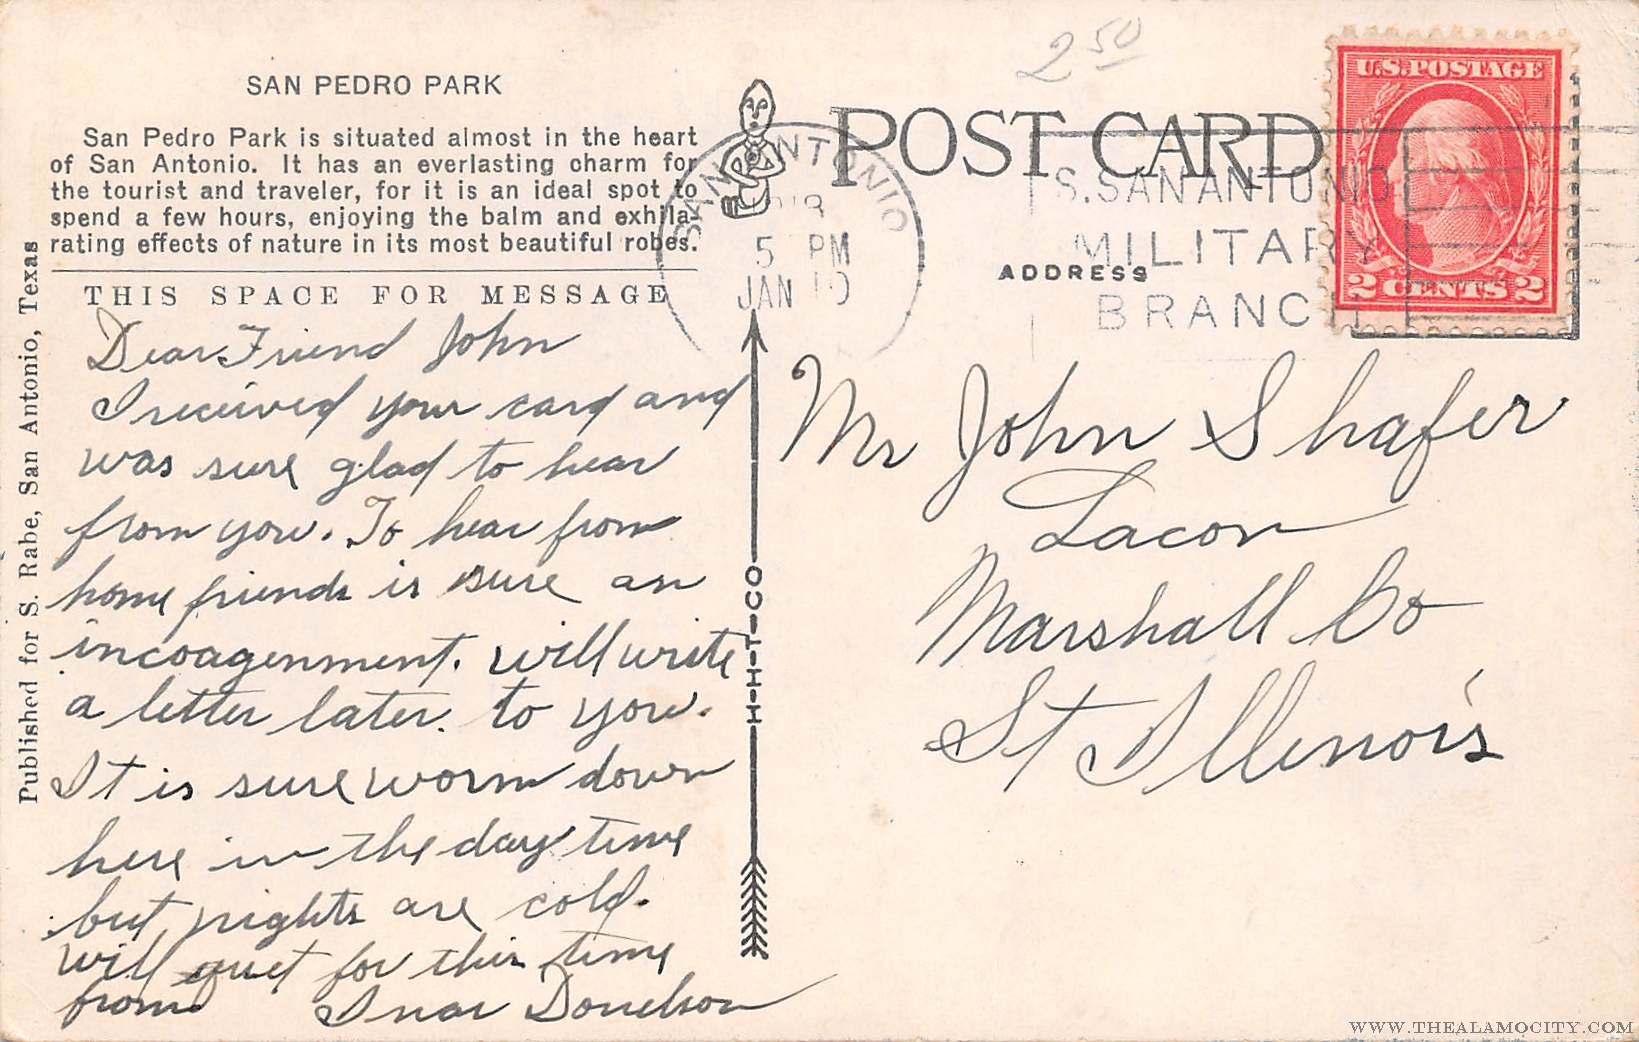 2 50
SAN PEDRO PARK
San Pedro Park is situated almost in the heart
of San Antonio. It has an everlasting charm for
the tourist and traveler, for it is an ideal spot to
spend a few hours, enjoying the balm and exhila-
rating effects of nature in its most beautiful robes.
THIS SPACE FOR MESSAGE
Dear Friend John
I received your card and
was sure glad to hear
from you. To hear from
home friends is sure an
incoagenment. will write
a letter later. to you.
It is sure worm down
here in the day time
but nights are cold.
will quet for this time
from Donelson
Published for S. Rabe, San Antonio, Texas
H-H-T-CO
POST CARD
SAN ANTONIO
5 PM
JAN
S. SAN ANTONIO
MILITARY
BRANCH
ADDRESS
U.S. POSTAGE
2 CENTS 2
Mr John Shafer
Lacon
Marshall Co
St Illenois
WWW.THEALAMOCITY.COM